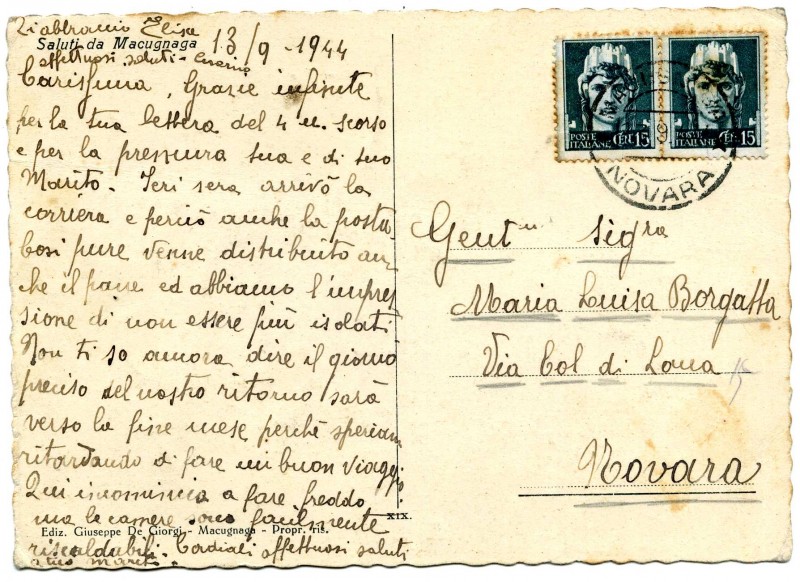 Ti abbraccio Elisa
Saluti da Macugnaga
13/9-1944
affettuosi saluti -
Carissima, Grazie infinite
per la tua lettera del 4 u. scorso
e per la pressura tua e di tuo
Marito. Ieri sera arrivò la
corriera e perciò anche la posta
Così pure venne distribuito an-
che il pane ed abbiamo l'impres
sione di non essere più isolati
Non ti so ancora dire il giorno
preciso del nostro ritorno sarà
verso la fine mese perchè speriam
ritardando di fare un buon viaggio.
Qui incomincia a fare freddo
ma le camere sono facilmente
XIX.
Ediz. Giuseppe De Giorgi - Macugnaga - Propr. ris.
riscaldabili. Cordiali affettuosi saluti
a tuo marito.
POSTE ITALIANE CENT. 15
POSTE ITALIANE CENT. 15
NOVARA
Gent.ma Sig.ra
Maria Luisa Borgatta
Via Col di Lana 15
Novara